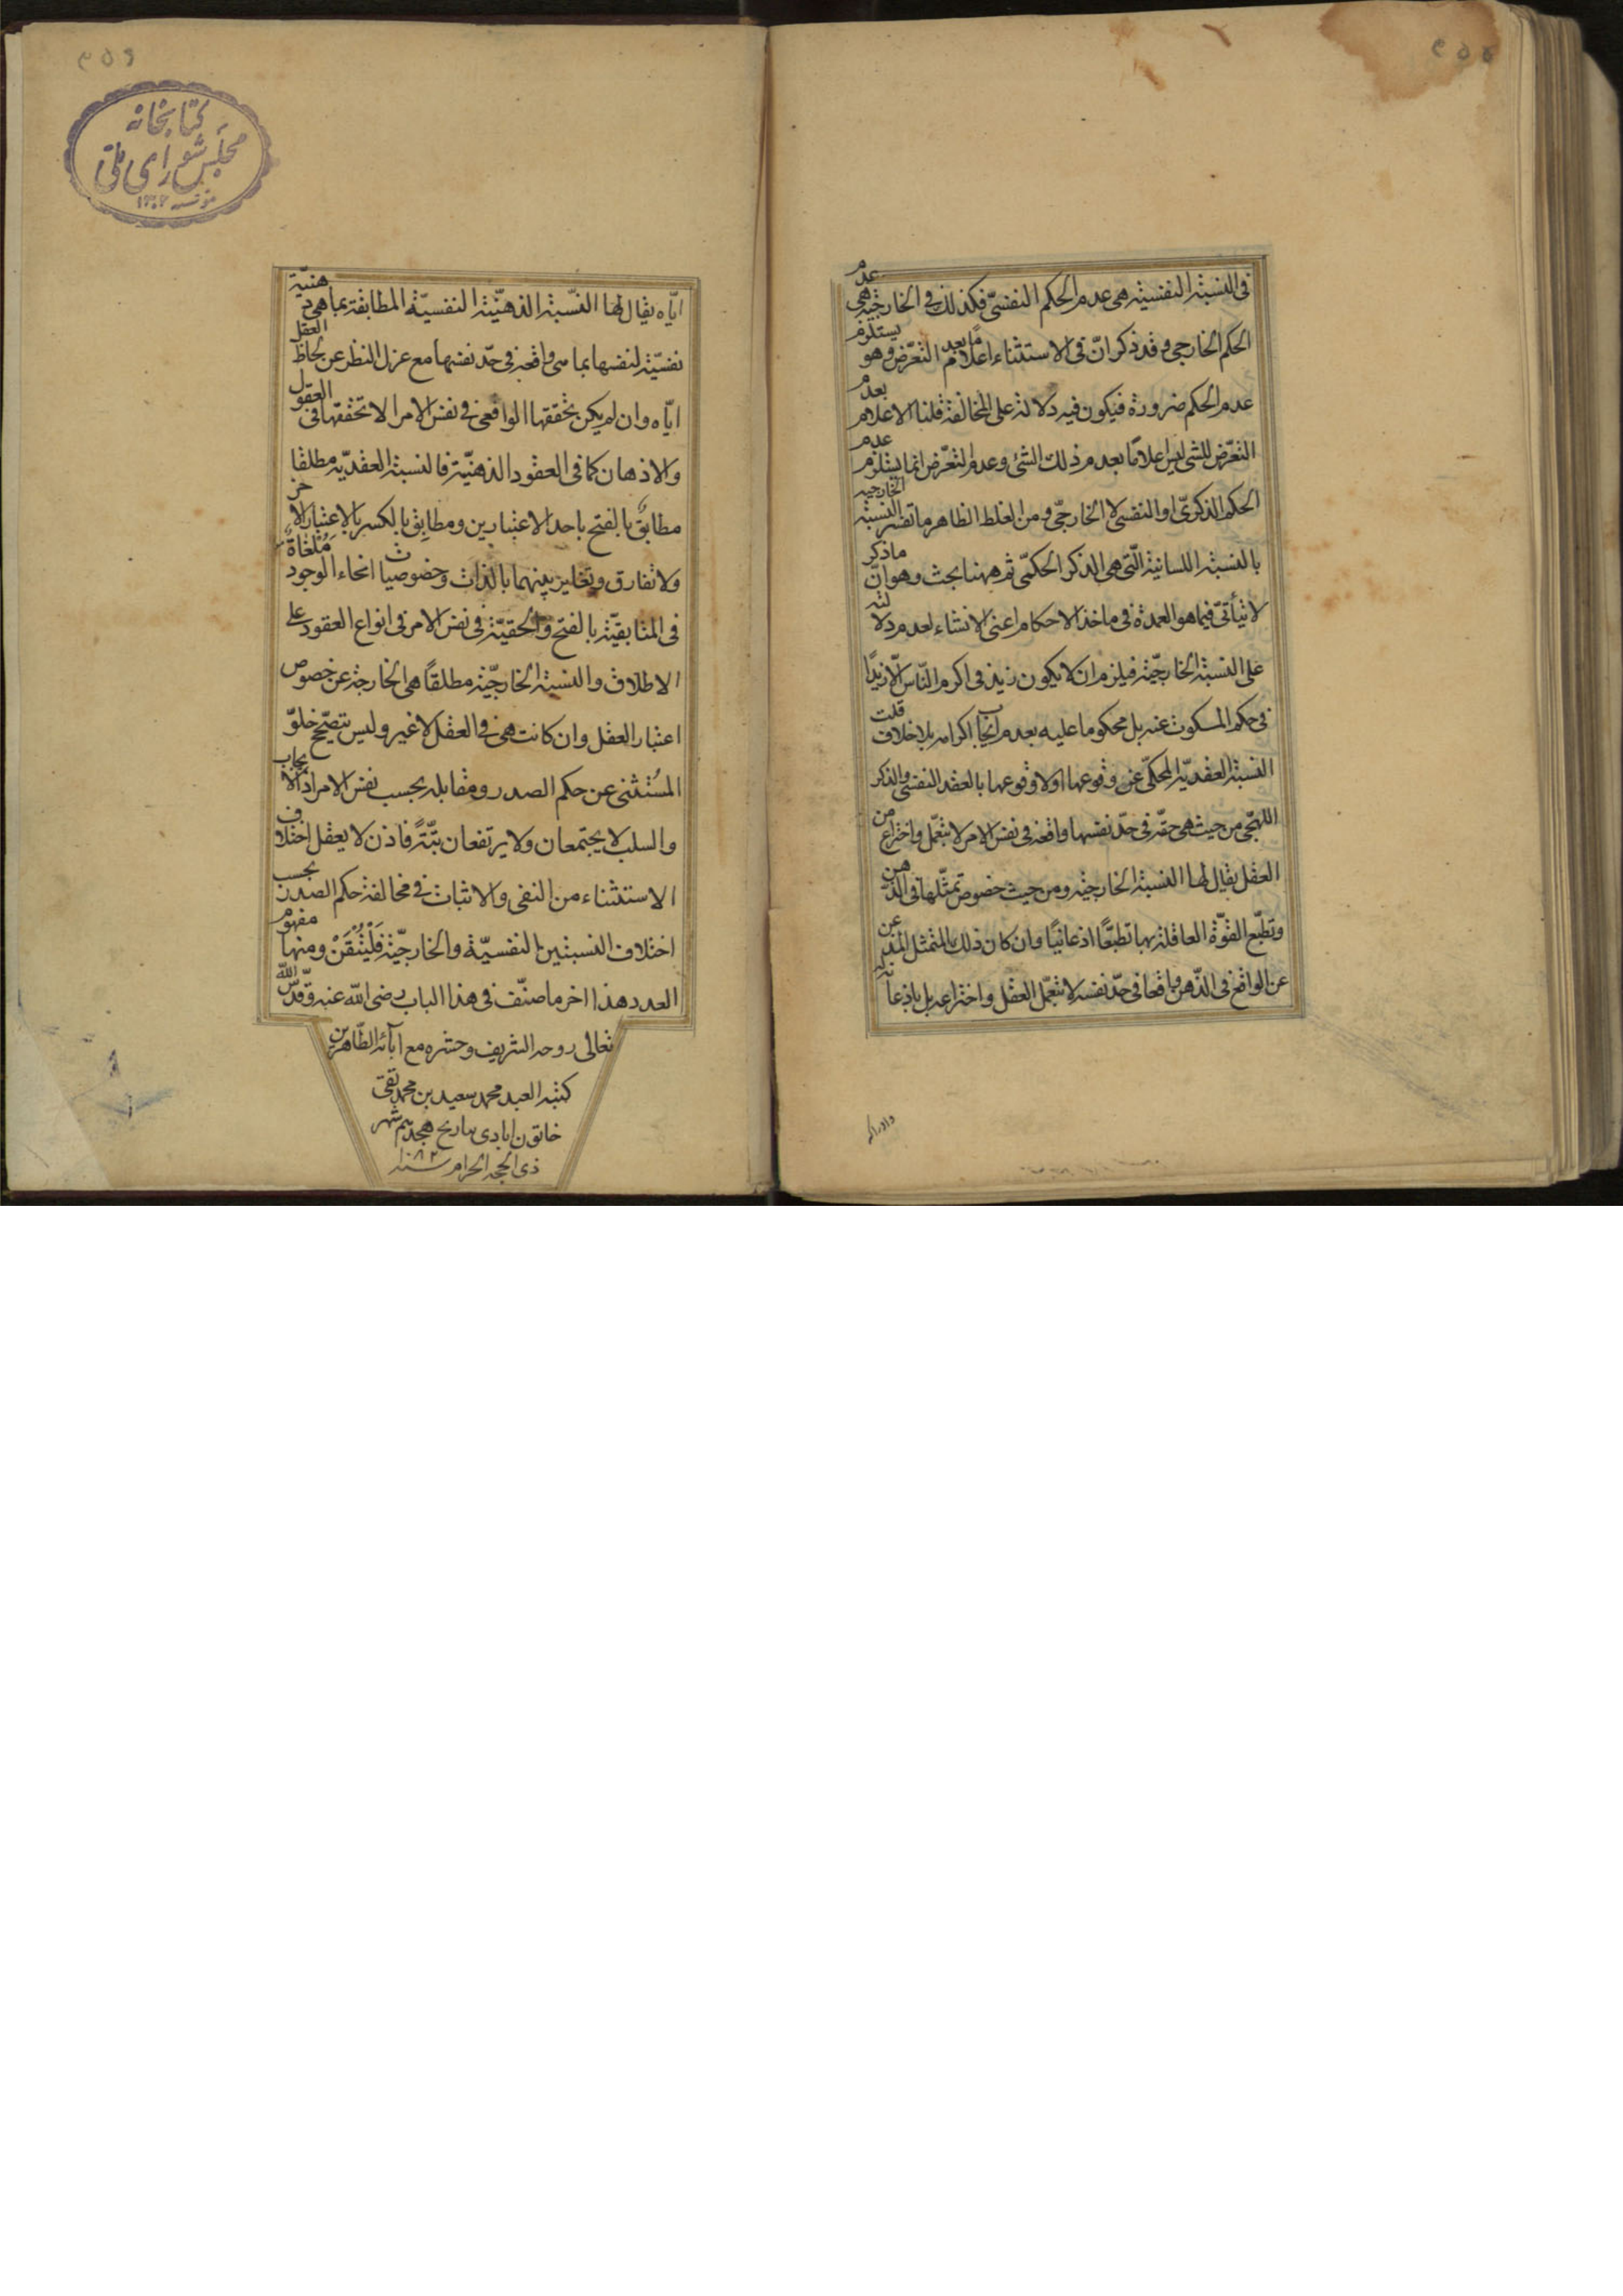 في النسبة النفسية هى عدم الحكم النفسىّ فكذلك في الخارجيّة هى عدم
الحكم الخارجي وقد ذكر انّ في الاستثناء اعلامًا بعدم التعرّض وهو يستلزم
عدم الحكم ضرورة فيكون فيه دلالة على المخالفة قلنا الاعلام بعدم
التعرّض للشئ ليس اعلامًا بعدم ذلك الشئ وعدم التعرّض انما يستلزم عدم
الحكم الذكرىّ او النفسى لا الخارجّي ومن الغلط الظاهر ما تفسر النسبة الخارجية
بالنسبة اللسانية الّتي هى الذكر الحكمّى ثم ههنا بحث وهو انّ ما ذكر
لا يتأتّى فيما هو العمدة في ماخذ الاحكام اعني الانشاء لعدم دلالته
على النسبة الخارجيّة فيلزم ان لا يكون زيد في اكرم النّاس الّا زيدًا
في حكم المسكوت عنه بل محكوما عليه بعدم ايجاب اكرامه بلا خلاف قلت
النسبة العقديّة المحكّى عن وقوعها او لا وقوعها بالعقد النفسى والذكر
اللهجّى من حيث هى حقّه في حدّ نفسها واقعه في نفس الامر لا بتعمّل واختراع من
العقل يقال لها النسبة الخارجيّة ومن حيث خصوص تمثّلها في الذّهن
وتطبّع القوّة العاقلة بها تطبّعًا اذعانيًا وان كان ذلك بالتمثل عن
عن الواقع في الذّهن واقعا في حدّ نفسه لا بتعمّل العقل واختراعه بل باذعانه
وادراكه
كتابخانه
مجلس شورای ملی
ايّاه يقال لها النسّبة الذهنيّة النفسيّة المطابقة بما هى ذهنيّة
نفسيّة لنفسها بما هى واقعة في حدّ نفسها مع عزل النظر عن لحاظ العقل
ايّاه وان لم يكن تحقّقها الواقعى في نفس الامر الا تحققها في العقول
والاذهان كما في العقود الذهنيّة فالنسبة العقديّة مطلقا
مطابَقٌ بالفتح باحد الاعتبارين ومطابِق بالكسر بالاعتبار الاخر
ولا تفارق وتغاير بينهما بالذات وخصوصيات انحاء الوجود مُلْغاةٌ
في المطابقيّة بالفتح والحقيّة في نفس الامر في انواع العقود على
الاطلاق والنسبة الخارجيّة مطلقًا هى الخارجة عن خصوص
اعتبار العقل وان كانت هى في العقل لا غير وليس يتصحّح خلوّ
المستثنى عن حكم الصدر ومقابله بحسب نفس الامر اذ الايجاب
والسلب لا يجتمعان ولا يرتفعان بتّةً فاذن لا يعقل اختلاف
الاستثناء من النفى والاثبات في مخالفة حكم الصدر بحسب
اختلاف النسبتين النفسيّة والخارجيّة فَلْيُتْقَنْ ومنها مفهوم
العدد هذا اخر ما صنّف في هذا الباب رضى الله عنه وقدّس الله
تعالى روحه الشريف وحشره مع آبائه الطّاهرين
كتبه العبد محمد سعيد بن محمد تقى
خاتون ابادى بتاريخ هجدهم شهر
ذى الحجه الحرام سنه ١٠٨٢